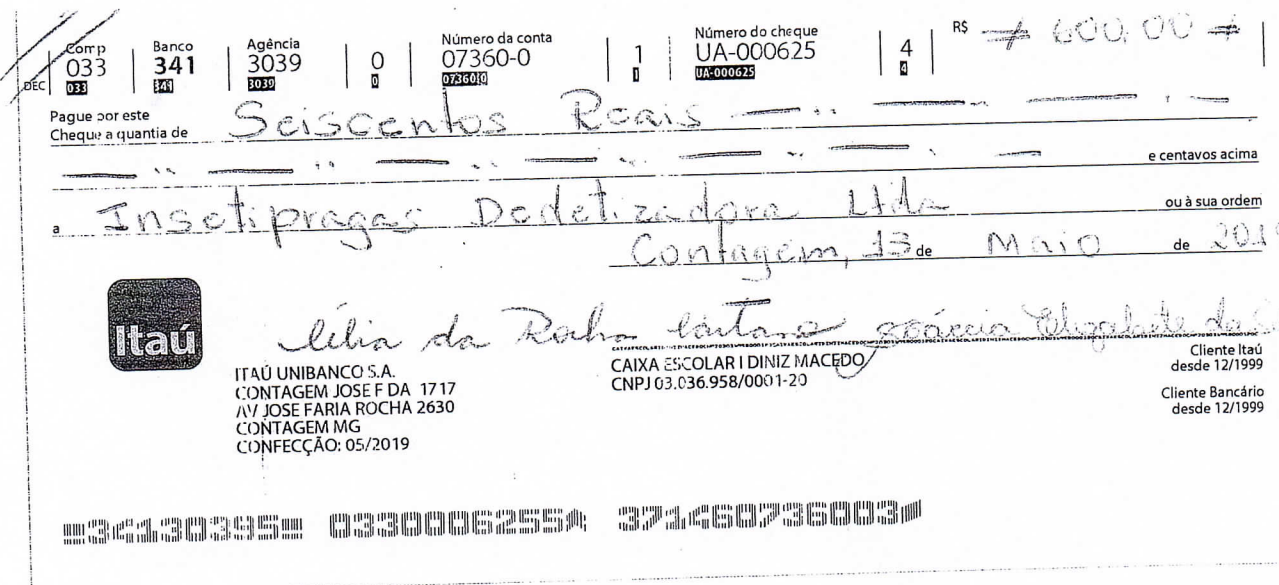 DEC
Comp Banco Agência Número da conta Número do cheque R$
033 341 3039 0 07360-0 1 UA-000625 4 # 600,00 #
033 341 3039 0 07360-0 1 UA-000625 4
Pague por este
Cheque a quantia de Seiscentos Reais
e centavos acima
a Insetipragas Dedetizadora Ltda ou à sua ordem
Contagem, 13 de Maio de 2019
Itaú
Célia da Rocha Elizabete da
ITAÚ UNIBANCO S.A.
CONTAGEM JOSE F DA 1717
AV JOSE FARIA ROCHA 2630
CONTAGEM MG
CONFECÇÃO: 05/2019
CAIXA ESCOLAR I DINIZ MACEDO
CNPJ 03.036.958/0001-20
Cliente Itaú
desde 12/1999
Cliente Bancário
desde 12/1999
34130395 0330006255 371460736003